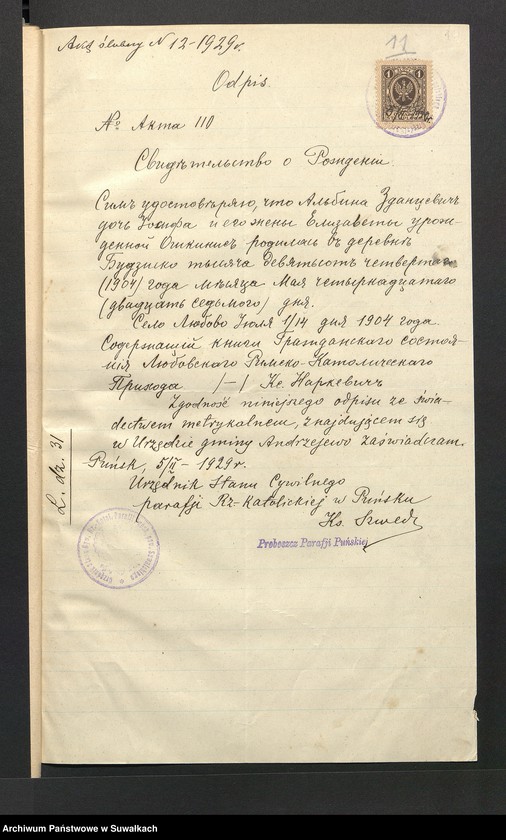 Akt ślubny N 12-1929r.
11
Odpis.
1 1
№ Акта 110
Свидѣтельство о Рожденіи
Симъ удостовѣряю, что Альбина Зданцевичъ
дочь Іосифа и его жены Елизаветы урож-
денной родилась въ деревнѣ
Будзиско тысяча девятьсотъ четвертаго
(1904) года мѣсяца Мая четырнадцатаго
(двадцать седьмого) дня.
Село Любово Іюля 1/14 дня 1904 года.
Содержащій книги Гражданского состоя-
нія Любовскаго Римско-Католическаго
Прихода /-/ Кс. Наркевичъ
Zgodność niniejszego odpisu ze świa-
dectwem metrykalnem, znajdującem się
w Urzędzie gminy Andrzejewo zaświadczam.
Puńsk, 5/II - 1929r.
Urzędnik Stanu Cywilnego
parafji Rz-katolickiej w Puńsku
Ks. Szwedz
Proboszcz Parafji Puńskiej
L. dz. 31
Archiwum Państwowe w Suwałkach